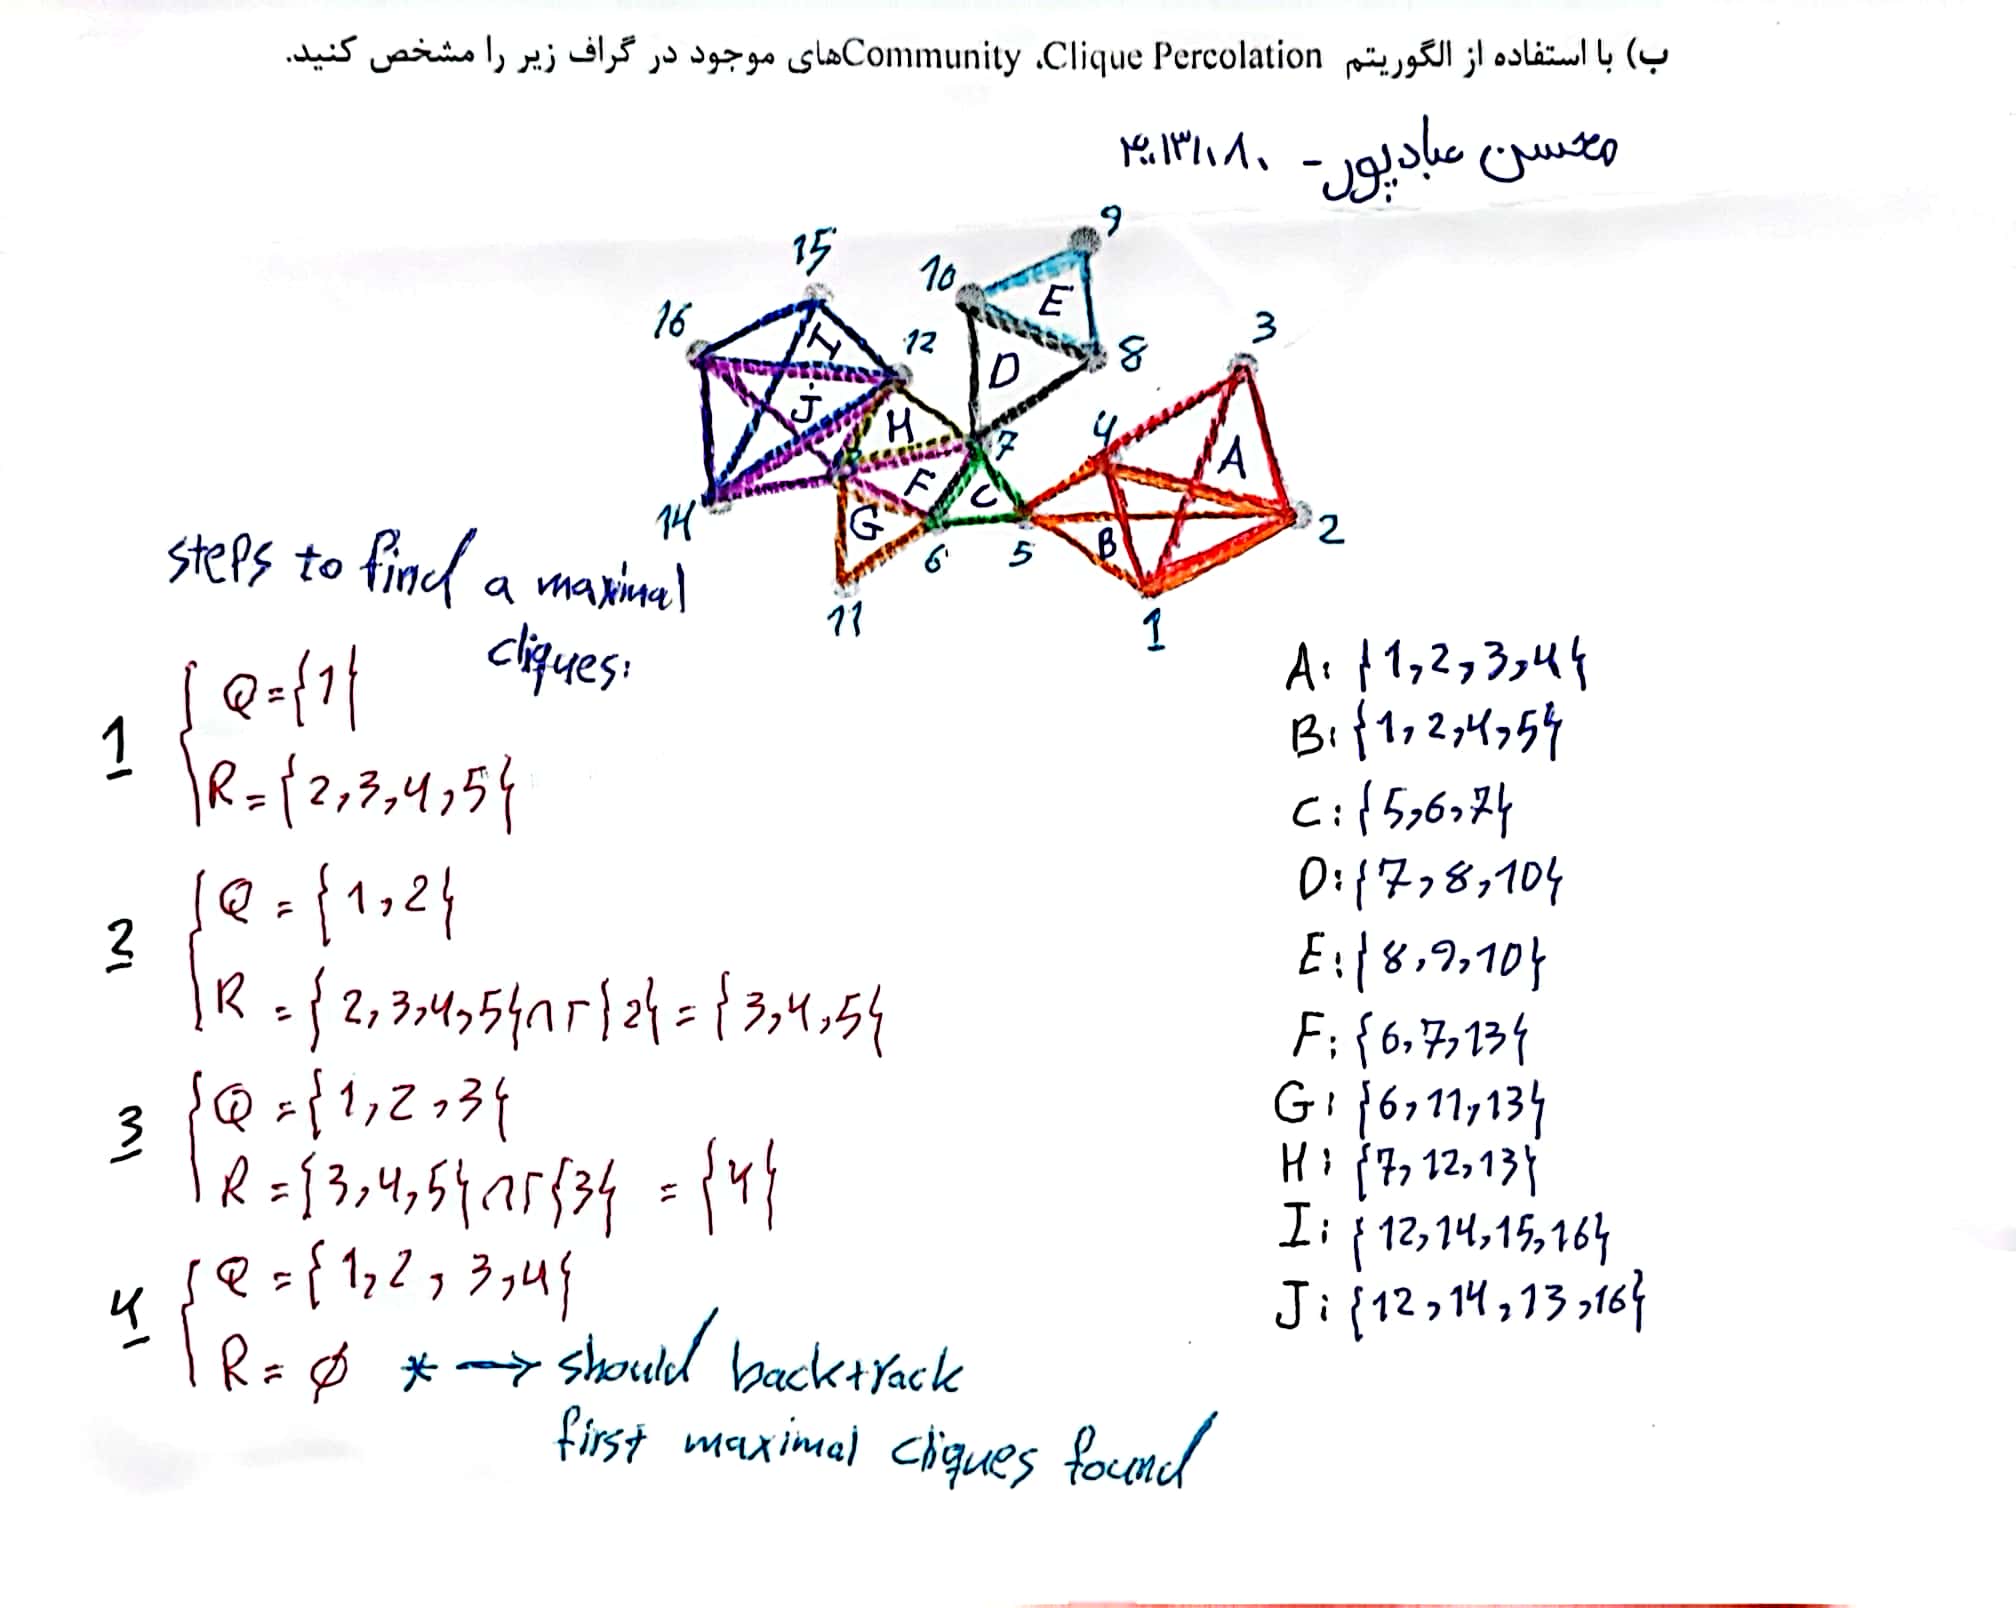 ب) با استفاده از الگوریتم Clique Percolation، Communityهای موجود در گراف زیر را مشخص کنید.
محسن عبادپور - ۴۰۱۳۱۰۸۰
9
15
10
16
3
12
E
8
I
D
J
4
H
7
A
F
C
14
G
2
B
6
5
11
1
steps to find a maximal
cliques:
1
Q={1}
R={2,3,4,5}
2
Q={1,2}
R={2,3,4,5}∩Γ{2}={3,4,5}
3
Q={1,2,3}
R={3,4,5}∩Γ{3}={4}
4
Q={1,2,3,4}
R=∅ * → should backtrack
first maximal cliques found
A: {1,2,3,4}
B: {1,2,4,5}
C: {5,6,7}
D: {7,8,10}
E: {8,9,10}
F: {6,7,13}
G: {6,11,13}
H: {7,12,13}
I: {12,14,15,16}
J: {12,14,13,16}